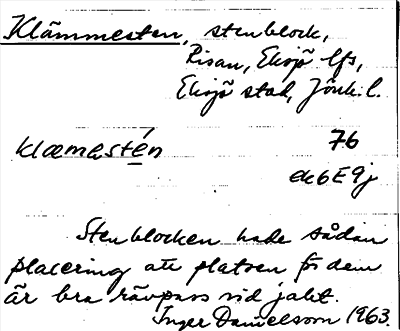 Klämmesten, stenblock,
Risan, Eksjö lfs,
Eksjö stad, Jönk. l.
klæmastén 76
ek 6E9j
Stenblocken hade sådan
placering att platsen för dem
är bra rävpass vid jakt.
Inger Danielsson 1963.